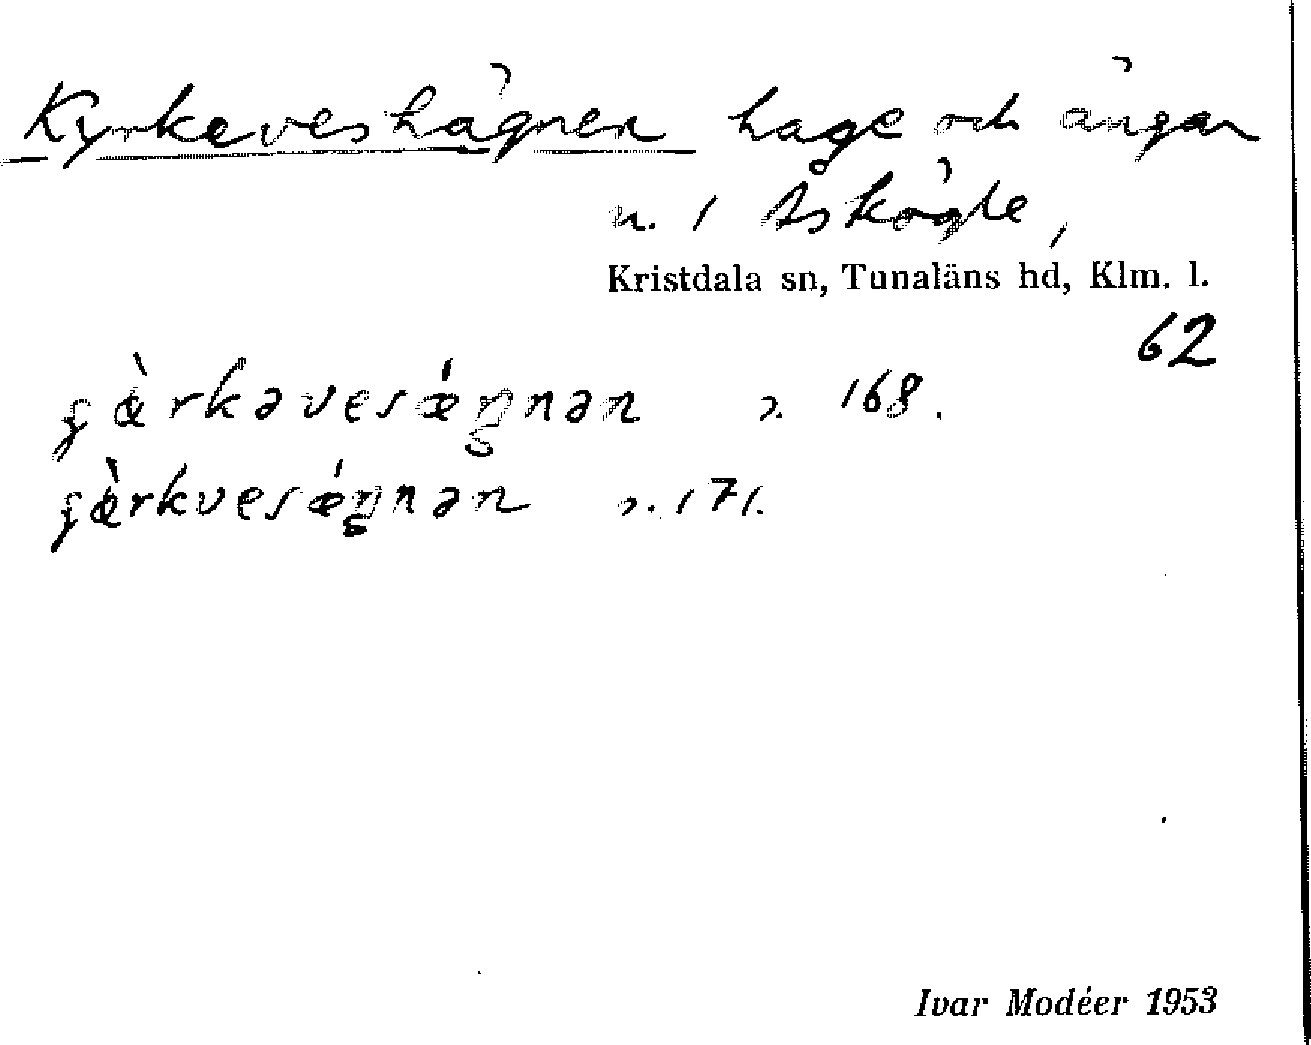 Kyrkeveshägnen hage och ängar
n. 1 Åskögle,
Kristdala sn, Tunaläns hd, Klm. l.
62
ɟæ̀rkəvesǽŋnən 2. 168.
ɟæ̀rkvesǽŋnən 2. 171.
Ivar Modéer 1953